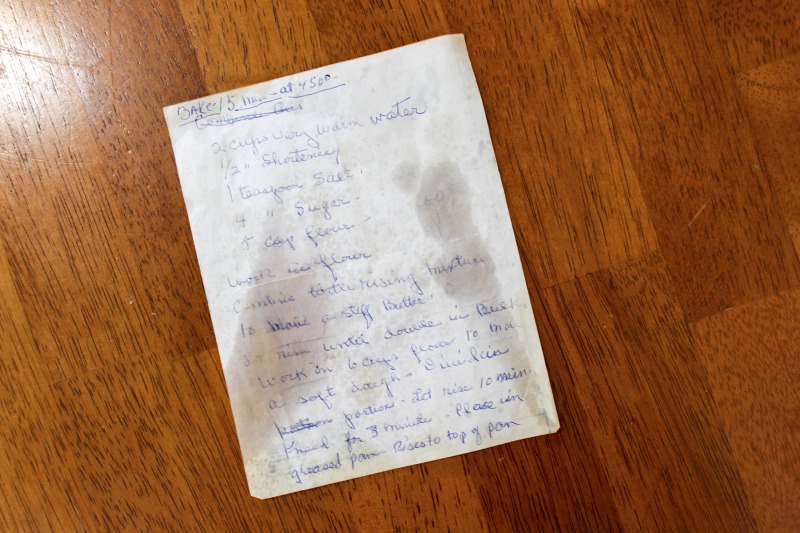 BAKE 15 Min - at 450°
Combine this
2 cups very warm water
1/2 " Shortening
1 teaspoon Salt
4 " Sugar
5 cup flour
work in flour
Combine to the rising mixture
to make a stiff Batter
rise until double in Bulk
Work in 6 cups flour to make
a soft dough - Divide in
portion - Let rise 10 min.
Knead for 3 minute - Place in
greased pan Rises to top of pan